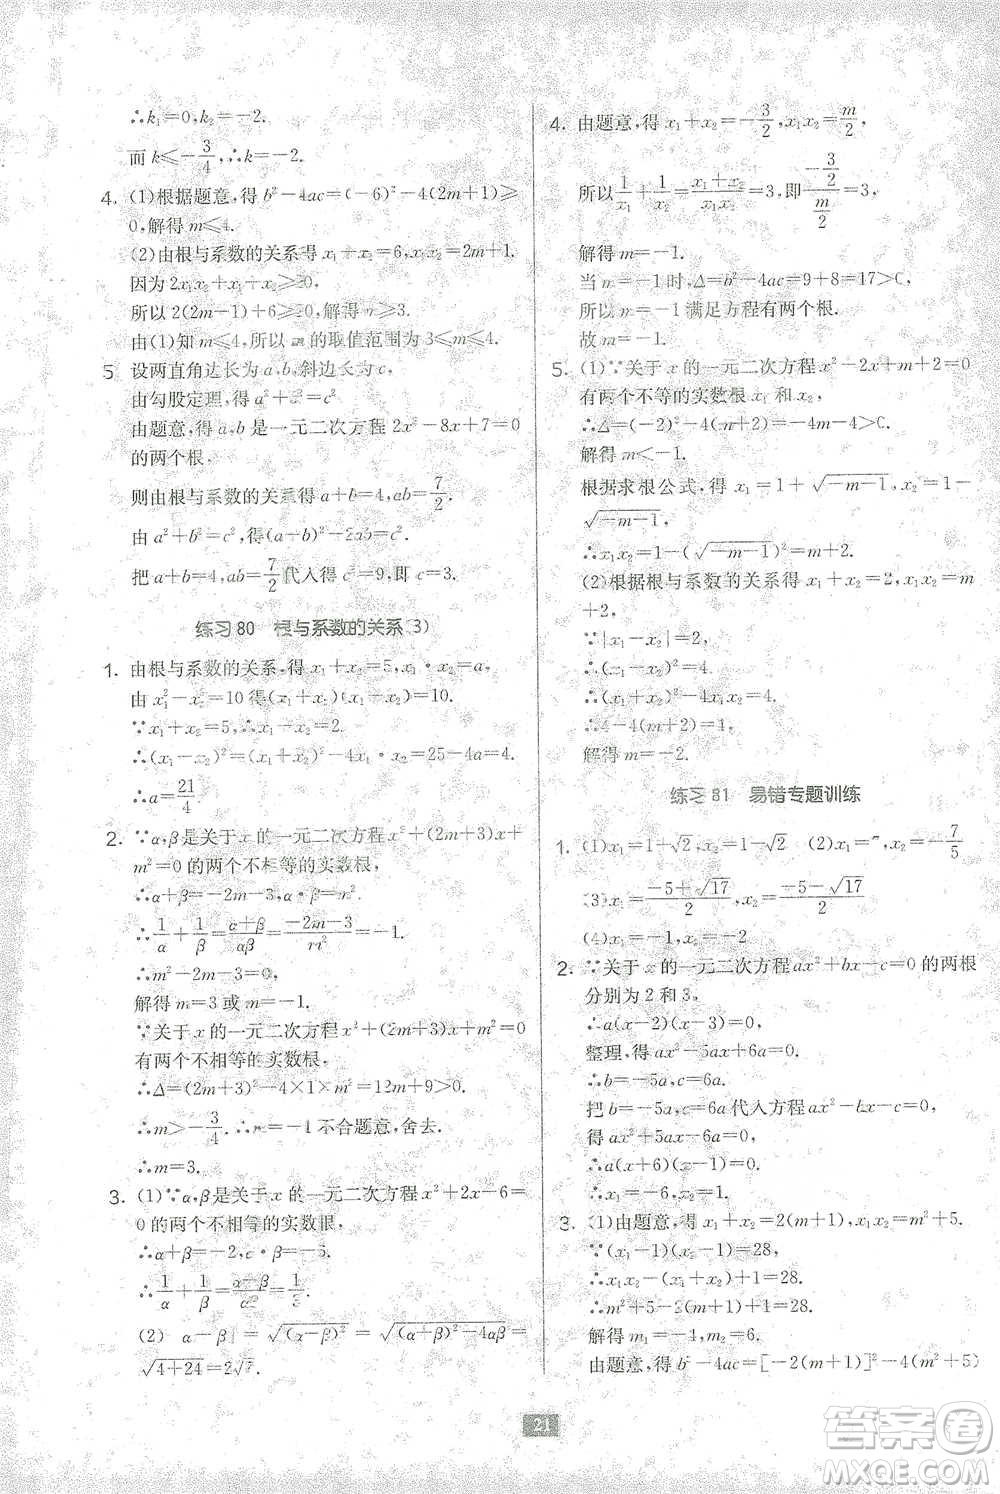 ∴k₁=0,k₂=-2.
而 k≤-3/4,∴k=-2.
4. (1)根据题意,得 b²-4ac=(-6)²-4(2m+1)≥
0,解得 m≤4.
(2)由根与系数的关系得 x₁+x₂=6,x₁x₂=2m+1.
因为 2x₁x₂+x₁+x₂≥20,
所以 2(2m+1)+6≥20,解得 m≥3.
由(1)知 m≤4,所以 m 的取值范围为 3≤m≤4.
5 设两直角边长为 a,b,斜边长为 c,
由勾股定理,得 a²+b²=c²
由题意,得 a,b 是一元二次方程 2x²-8x+7=0
的两个根.
则由根与系数的关系得 a+b=4,ab=7/2.
由 a²+b²=c²,得(a+b)²-2ab=c²,
把 a+b=4,ab=7/2代入得 c²=9,即 c=3.
练习 80 根与系数的关系(3)
1. 由根与系数的关系,得 x₁+x₂=5,x₁·x₂=a,
由 x₁²-x₂²=10 得(x₁+x₂)(x₁-x₂)=10.
∵x₁+x₂=5,∴x₁-x₂=2.
∴(x₁-x₂)²=(x₁+x₂)²-4x₁·x₂=25-4a=4.
∴a=21/4
2. ∵α,β是关于 x 的一元二次方程 x²+(2m+3)x+
m²=0 的两个不相等的实数根,
∴α+β=-2m-3,αβ=m².
∴1/α+1/β=(α+β)/αβ=(-2m-3)/m²=-1.
∴m²-2m-3=0.
解得 m=3 或 m=-1.
∵关于 x 的一元二次方程 x²+(2m+3)x+m²=0
有两个不相等的实数根,
∴Δ=(2m+3)²-4×1×m²=12m+9>0.
∴m>-3/4.∴m=-1 不合题意,舍去.
∴m=3.
3. (1)∵α,β是关于 x 的一元二次方程 x²+2x-6=
0 的两个不相等的实数根,
∴α+β=-2,α·β=-6.
∴1/α+1/β=(α+β)/αβ=1/3.
(2) |α-β|=√(α-β)²=√(α+β)²-4αβ=
√4+24=2√7.
4. 由题意,得 x₁+x₂=-3/2,x₁x₂=m/2,
所以 1/x₁+1/x₂=(x₁+x₂)/x₁x₂=3,即 (-3/2)/(m/2)=3,
解得 m=-1.
当 m=-1 时,Δ=b²-4ac=9+8=17>0,
所以 m=-1 满足方程有两个根.
故 m=-1.
5. (1)∵关于 x 的一元二次方程 x²-2x+m+2=0
有两个不等的实数根 x₁ 和 x₂,
∴Δ=(-2)²-4(m+2)=-4m-4>0.
解得 m<-1.
根据求根公式,得 x₁=1+√-m-1,x₂=1-
√-m-1,
∴x₁x₂=1-(√-m-1)²=m+2.
(2)根据根与系数的关系得 x₁+x₂=2,x₁x₂=m
+2.
∵|x₁-x₂|=2,
∴(x₁-x₂)²=4.
∴(x₁+x₂)²-4x₁x₂=4.
∴4-4(m+2)=4.
解得 m=-2.
练习 81 易错专题训练
1. (1)x₁=1+√2,x₂=1-√2 (2)x₁= ,x₂=-7/5
(3)x₁=(-5+√17)/ ,x₂=(-5-√17)/
(4)x₁=-1,x₂=-2
2. ∵关于 x 的一元二次方程 ax²+bx-c=0 的两根
分别为 2 和 3,
∴a(x-2)(x-3)=0.
整理,得 ax²-5ax+6a=0.
∴b=-5a,c=6a.
把 b=-5a,c=6a代入方程
得 ax²+5ax-6a=0.
∴a(x+6)(x-1)=0.
∴x₁=-6,x₂=1.
3. (1)由题意,得 x₁+x₂=2(m+1),x₁x₂=m²+5.
∵(x₁-1)(x₂-1)=28,
∴x₁x₂-(x₁+x₂)+1=28.
∴m²+5-2(m+1)+1=28.
解得 m₁=-4,m₂=6.
由题意,得 b²-4ac=[-2(m+1)]²-4(m²+5)
21
答案圈
MXQE.COM